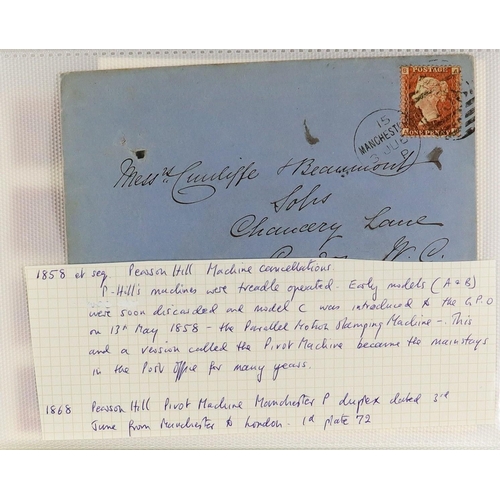 POSTAGE
ONE PENNY
15
MANCHESTER
3 JU
P
Messrs Cunliffe & Beaumont
Solrs
Chancery Lane
London W.C.
1858 et seq Pearson Hill Machine cancellations.
P. Hill's machines were treadle operated. Early models (A & B)
were soon discarded and model C was introduced to the G.P.O
on 13th May 1858 - the Parallel Motion Stamping Machine -. This
and a version called the Pivot Machine became the mainstays
in the Post Office for many years.
1868 Pearson Hill Pivot Machine Manchester P duplex dated 3rd
June from Manchester to London. 1d plate 72